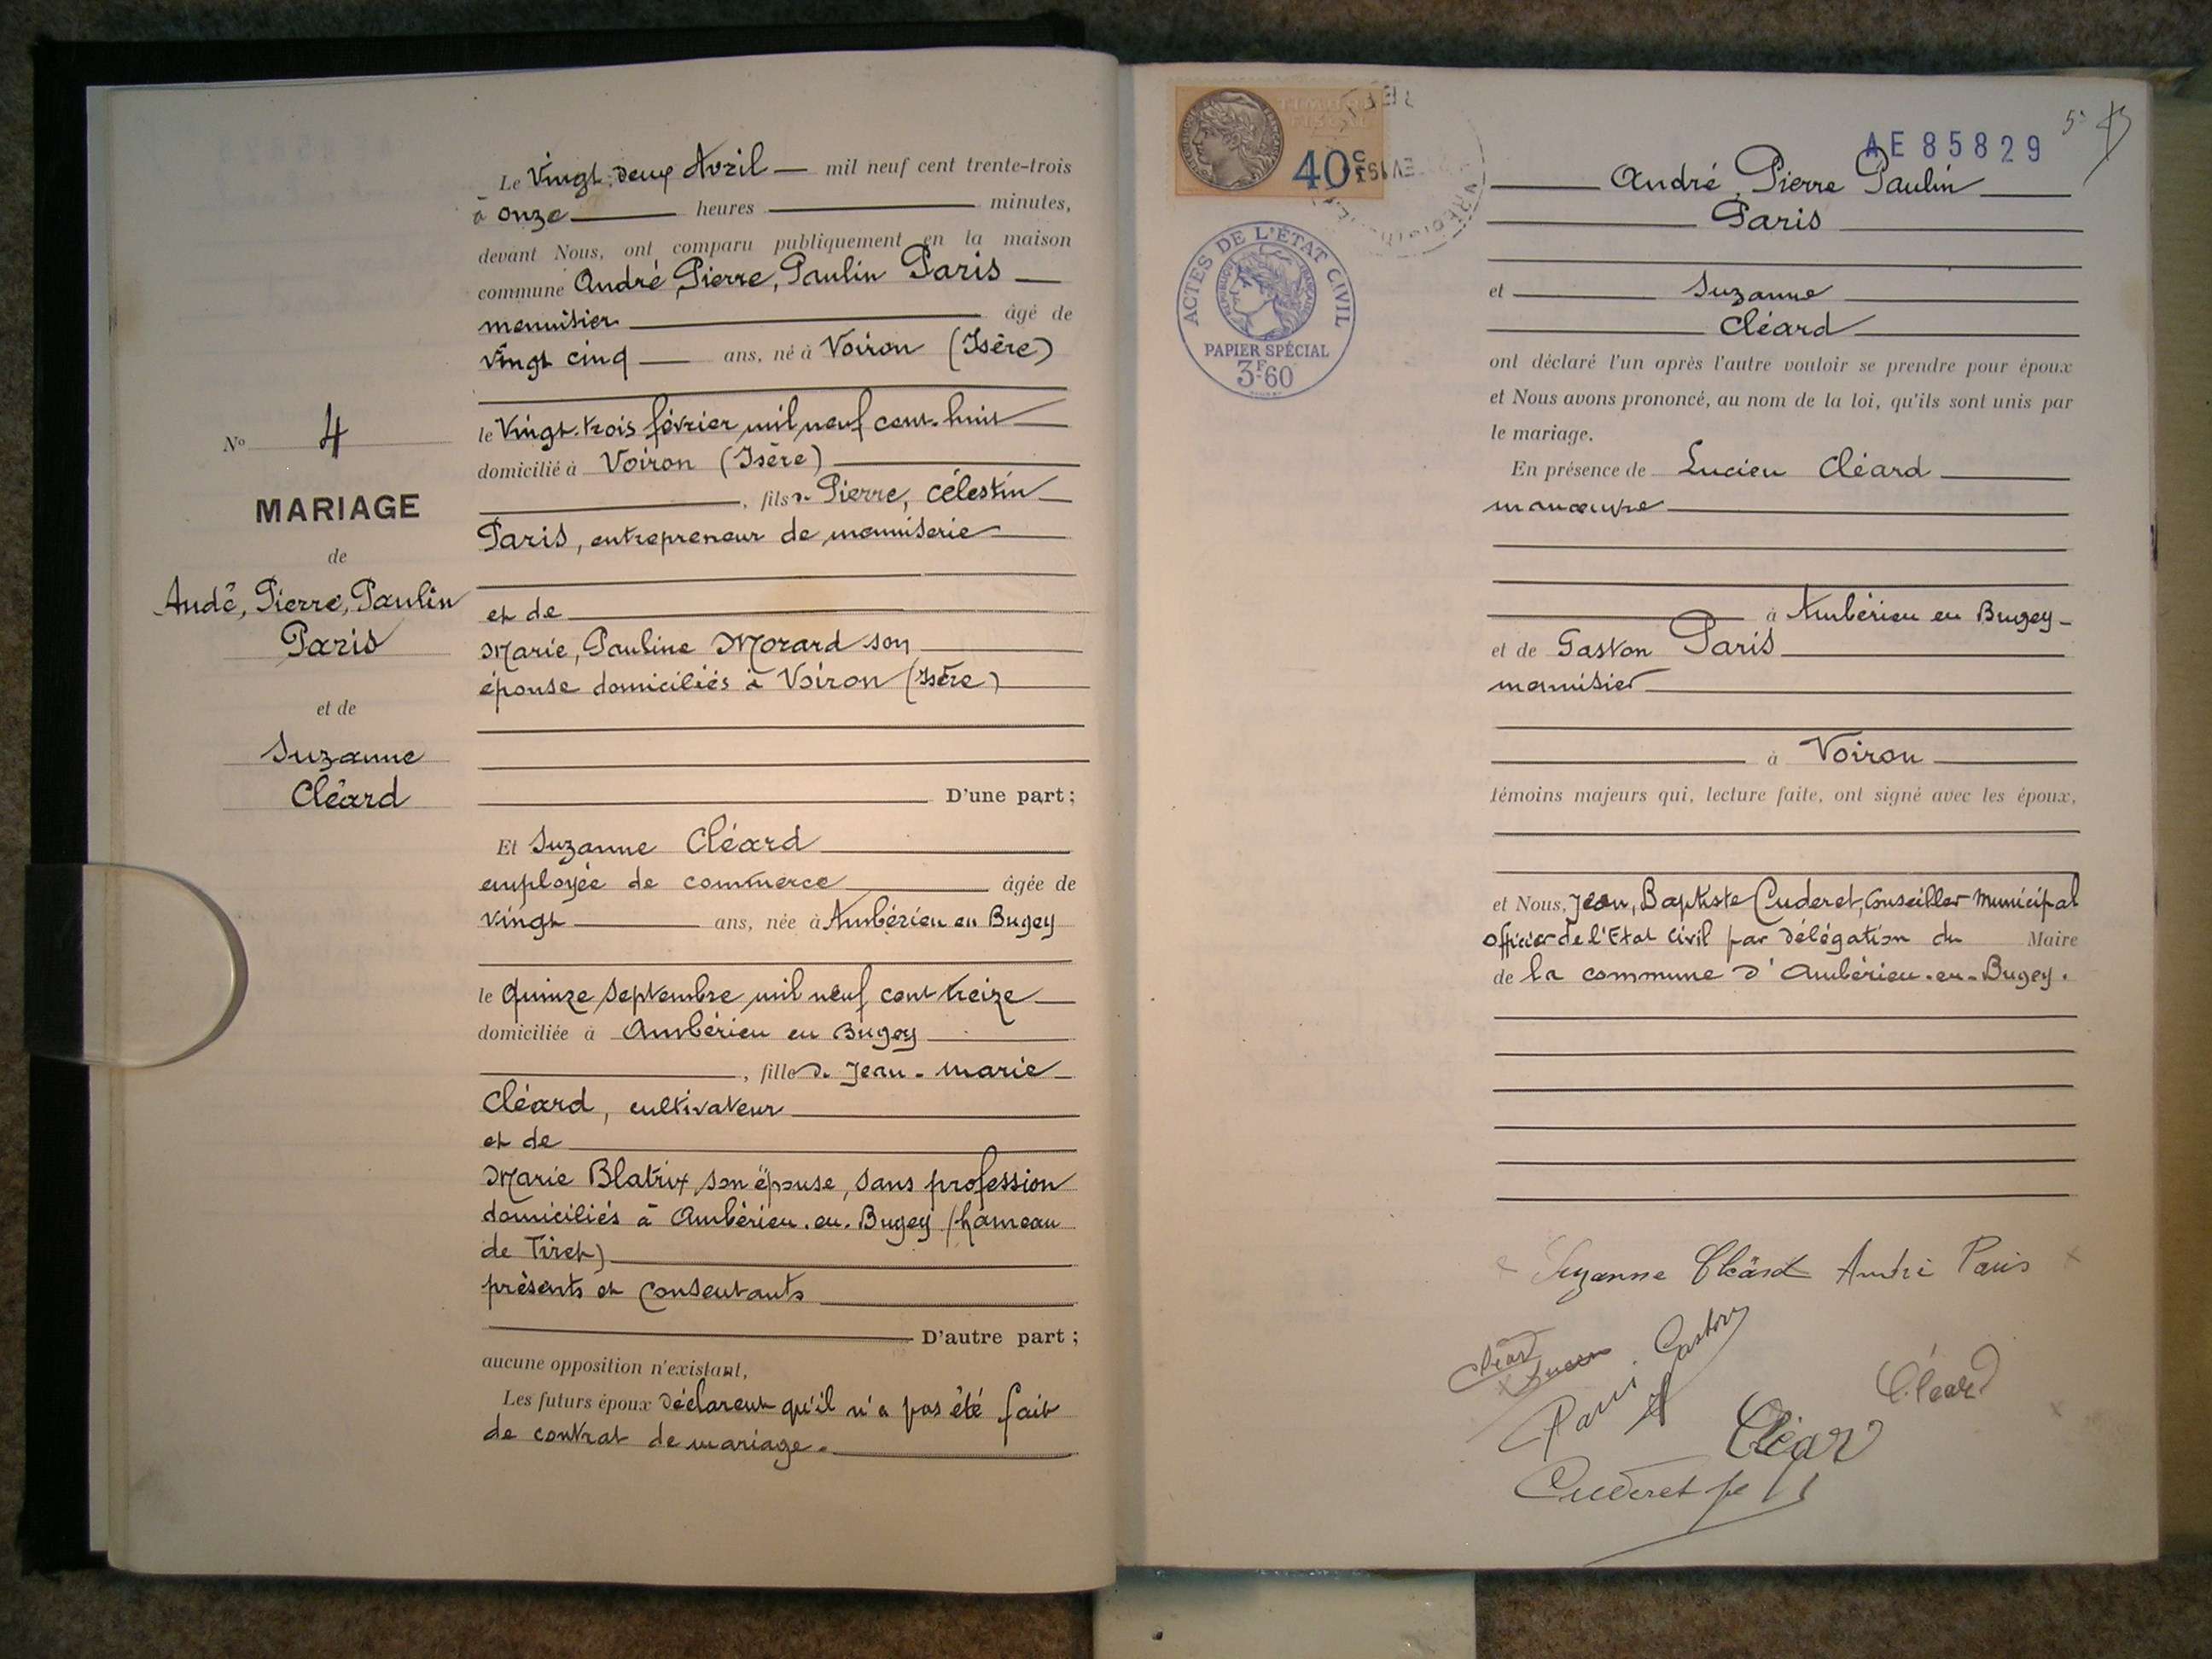 Le Vingt-deux Avril mil neuf cent trente-trois
à onze heures minutes,
devant Nous, ont comparu publiquement en la maison
commune André, Pierre, Paulin Paris
menuisier âgé de
vingt cinq ans, né à Voiron (Isère)
le Vingt-trois février mil neuf cent-huit
domicilié à Voiron (Isère)
, fils de Pierre, Célestin
Paris, entrepreneur de menuiserie
et de
Marie, Pauline Morard son
épouse domiciliés à Voiron (Isère)
D'une part;
Et Suzanne Cléard
employée de commerce âgée de
vingt ans, née à Ambérieu en Bugey
le quinze septembre mil neuf cent treize
domiciliée à Ambérieu en Bugey
, fille de Jean-Marie
Cléard, cultivateur
et de
Marie Blatrix, son épouse, sans profession
domiciliés à Ambérieu-en-Bugey (hameau
de Tiret)
présents et consentants
D'autre part;
aucune opposition n'existant,
Les futurs époux déclarent qu'il n'a pas été fait
de contrat de mariage.
No 4
MARIAGE
de
Andé, Pierre, Paulin
Paris
et de
Suzanne
Cléard
TIMBRE
FISCAL
40c
ACTES DE L'ÉTAT CIVIL
RÉPUBLIQUE FRANÇAISE
PAPIER SPÉCIAL
3F60
AE 85829
André, Pierre Paulin
Paris
et Suzanne
Cléard
ont déclaré l'un après l'autre vouloir se prendre pour époux
et Nous avons prononcé, au nom de la loi, qu'ils sont unis par
le mariage.
En présence de Lucien Cléard
manœuvre
à Ambérieu en Bugey
et de Gaston Paris
menuisier
à Voiron
témoins majeurs qui, lecture faite, ont signé avec les époux,
et Nous, Jean, Baptiste Cuderet, Conseiller Municipal
officier de l'Etat Civil par délégation du Maire
de la commune d'Ambérieu-en-Bugey.
Suzanne Cléard André Paris
Cléard
Lucien
Paris Gaston
Cléard
Cléard
Cuderet